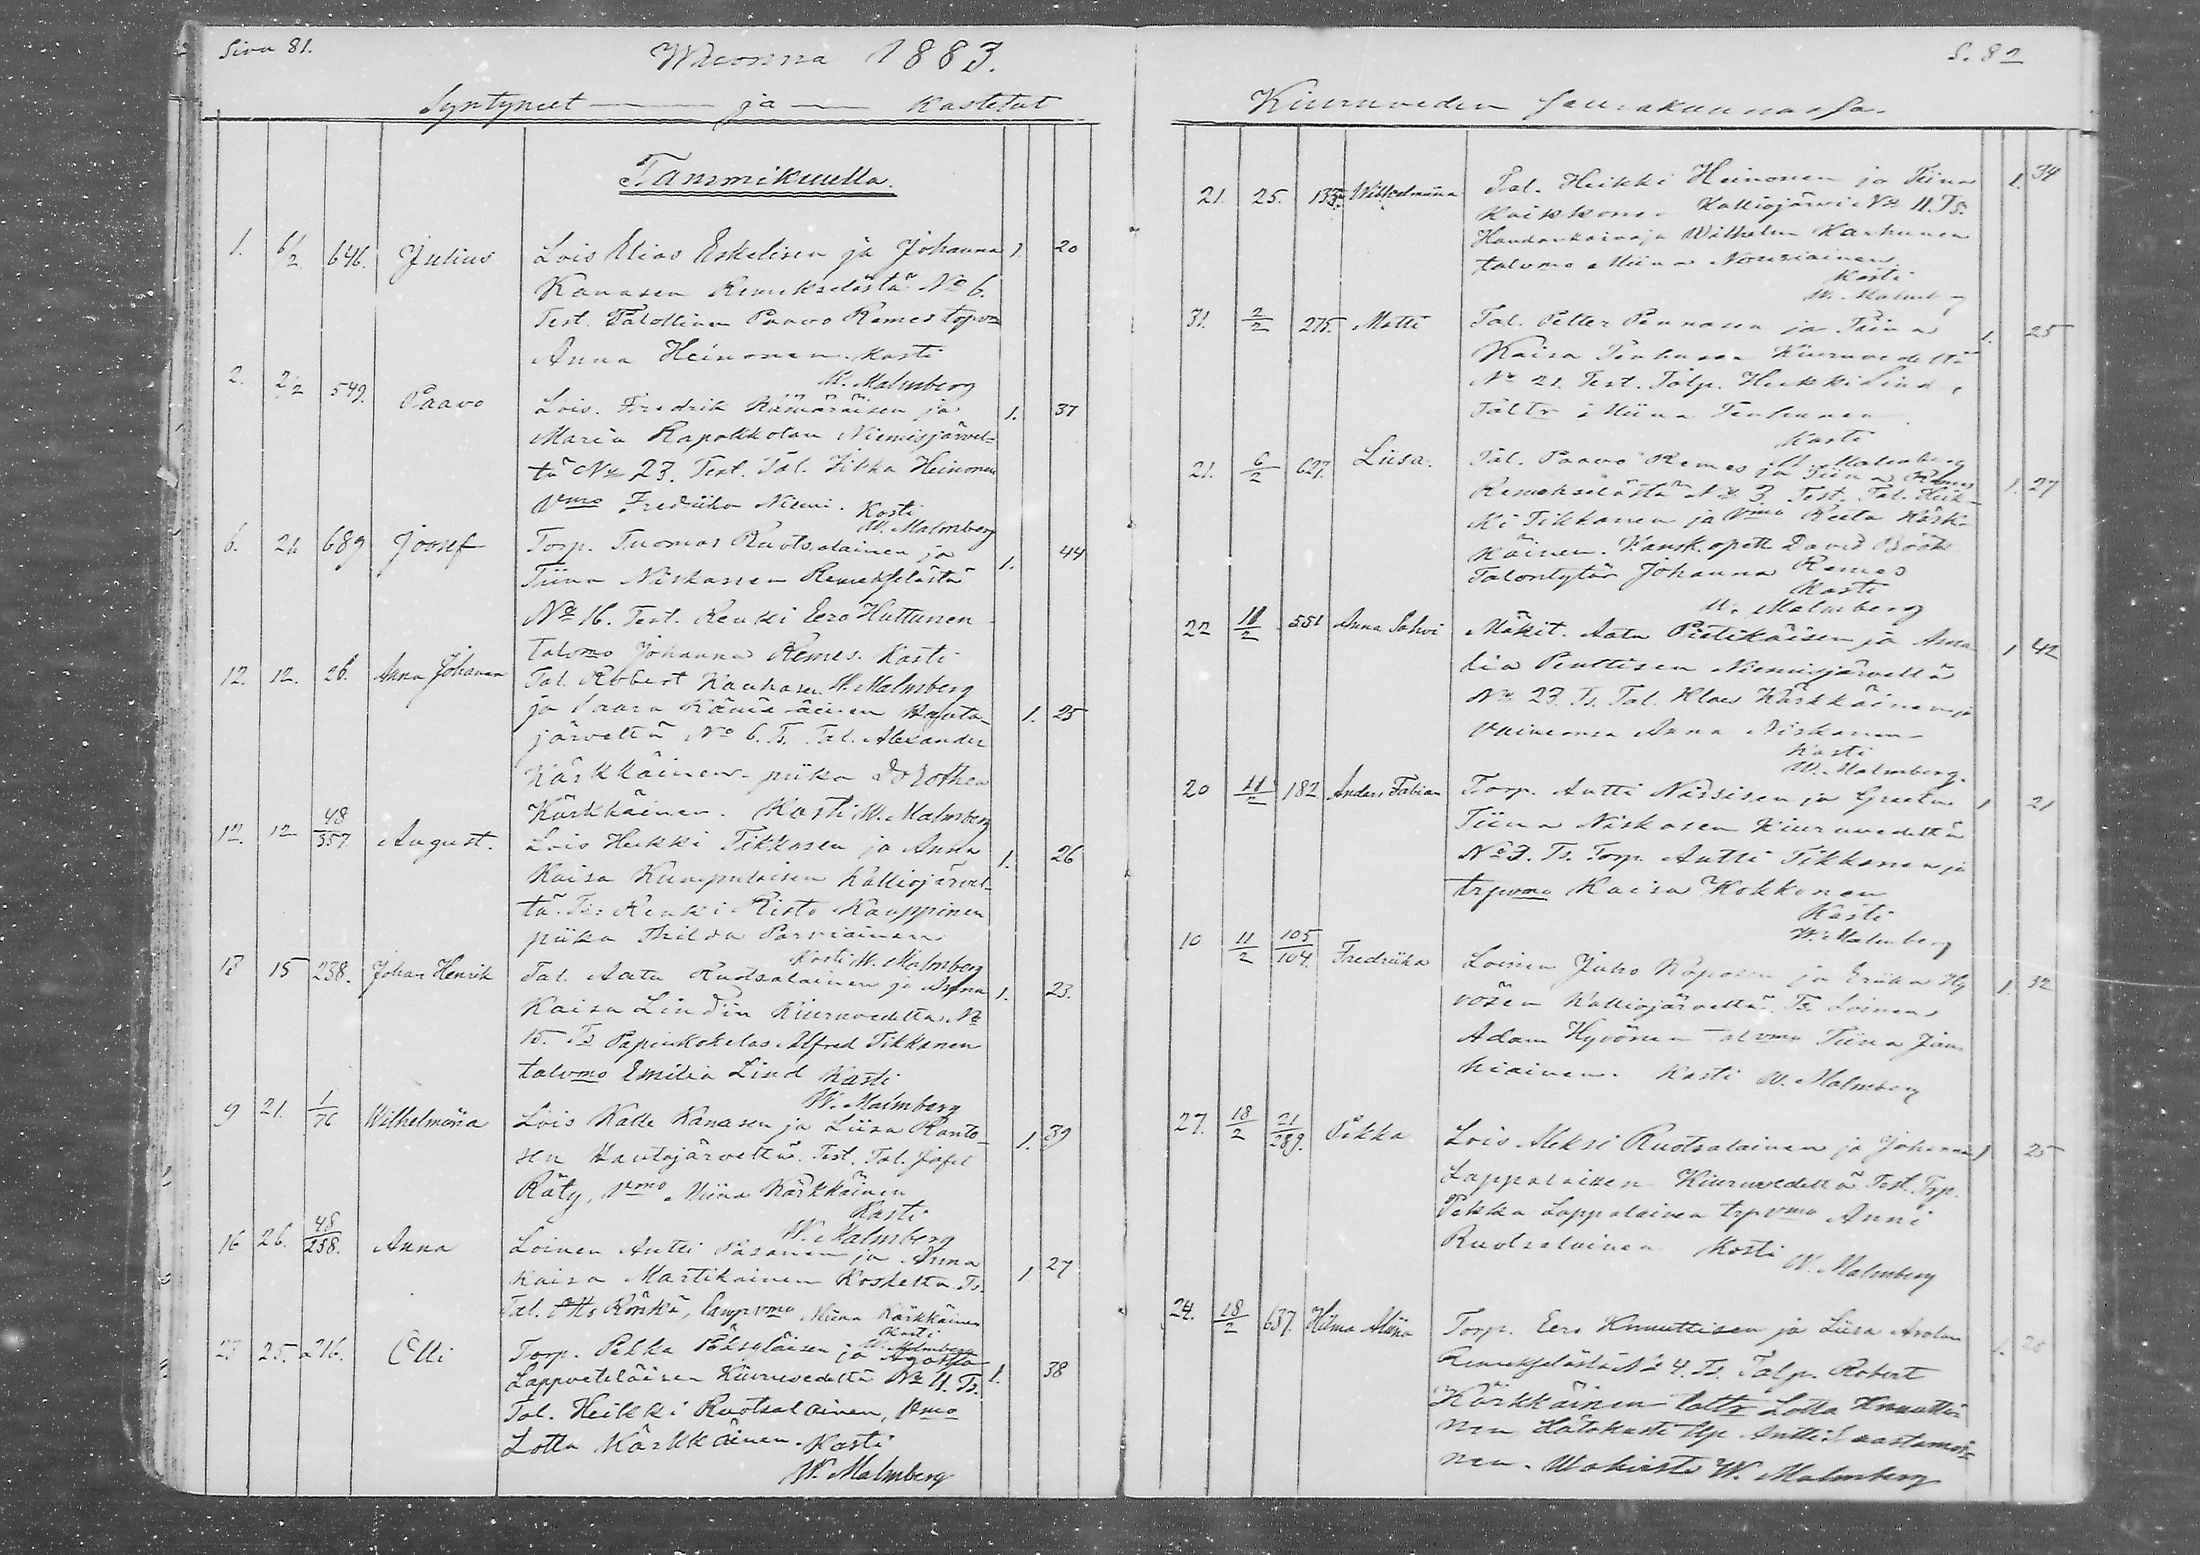 Sivu 81.
Wuonna 1883.
Syntyneet ja Kastetut
Tammikuulla.
1. 6/2 646. Julius Lois Elias Eskelisen ja Johanna 1 20
Kanasen Remekselästä No 6.
Test. Talollinen Paavo Remes torpvm
Anna Heinonen. Kasti
W. Malmberg
2. 2/2 549. Paavo Lois. Fredrik Rämäräisen ja 1. 37
Maria Rapakkotan Niemisjärvel-
tä No 23. Test. Tal. Jikka Heinonen
Vmo Fredrika Niemi. Kasti
W. Malmberg
6. 21. 689 Joosef Torp. Tuomas Ruotsalainen ja 1. 44
Tiina Niskanen Remekselästä
No 16. Test. Renki Eero Huttunen
talvmo Johanna Remes. Kasti
W. Malmberg
12. 12. 26. Anna Johanna Tal. Robert Kauhasen
ja Saara Hauta- 1. 25
järveltä No 6. Ts. Tal. Alexander
Kärkkäinen piika Dorothea
Kärkkäinen. Kasti W. Malmberg
12. 12 48/357. August. Lois Heikki Tikkasen ja Anna 1. 26
Kaisa Kumpulaisen Kalliojärvel-
tä. Ts: Renki Risto Kauppinen
piika Thilda Parviainen
Kasti W. Malmberg
13 15 238. Johan Henrik Tal. Aatu Ruotsalainen ja Anna 1. 23.
Kaisa Lindin Kiuruvedeltä No
15. Ts Papinkokelas Alfred Tikkanen
talvmo Emilia Lind Kasti
W. Malmberg
9 21. 1/76 Wilhelmina Lois Kalle Kanasen ja Liisa Ranto- 1. 39
sen Hautajärveltä. Test. Tal. Josef
Räty, Vmo Miina Kärkkäinen
Kasti
W. Malmberg
16 26. 48/238. Anna Loinen Antti Pasanen ja Anna 1 27
Kaisa Martikainen Koskelta. Ts.
Tal. Otto Rönkä, lampvmo Miina Kärkkäinen
Kasti
W. Malmberg
23 25. 216. Olli Torp. Pekka Pökseläisen ja Agatta 1. 38
Lappveteläisen Kiuruvedeltä No 11. Ts.
Tal. Heikki Ruotsalainen, Vmo
Lotta Kärkkäinen. Kasti
W. Malmberg
S. 82
Kiuruveden seurakunnassa.
21. 25. Wilhelmiina Tal. Heikki Heinonen ja Tiina 1. 34
Kaikkonen Kalliojärvi No 11. Ts.
Haudankaivaja Wilhelm Karhunen
talvmo Miina Nousiainen
Kasti
W. Malmberg
31. 2/2 275. Matti Tal. Petter Pennasen ja Tiina 1. 25
Kaisa Tenhusen Kiuruvedeltä
No 21. Test. Talp. Heikki Lind,
Taltr Miina Tenhunen
Kasti
W. Malmberg
21. 6/2 627. Liisa. Tal. Paavo Remes ja Tiina Remes 1. 27
Remekselästä No 3 Test. Tal. Heik-
ki Tikkanen ja Vmo Reeta Kärk-
käinen. Kansk. opett David Böök
Talontytär Johanna Remes
Kasti
W. Malmberg
22 11/2 551 Anna Sohvi Mäkit. Aatu Pietikäisen ja Ama- 1 42
lia Penttisen Niemisjärveltä
No 23. Ts. Tal. Klaes Kärkkäinen ja
vaimonsa Anna Niskanen
Kasti
W. Malmberg.
20 11/2 182 Anders Fabian Torp. Antti Nissisen ja Greeta 1 21
Tiina Niskasen Kiuruvedeltä
No 3. Ts. Torp. Antti Tikkanen ja
trpvmo Kaisa Kokkonen
Kasti
W. Malmberg
10 11/2 105/104. Fredriika Loinen Juho Kaposen ja Eriika Hy 1. 32
vösen Kalliojärveltä. Ts. Loinen
Adam Hyvönen Talvmo Tiina Jau-
hiainen. Kasti W. Malmberg
27. 18/2 21/289. Pekka Lois Aleksi Ruotsalainen ja Johanna 1 25
Lappalainen Kiuruvedeltä Test. Trp.
Pekka Lappalainen trpvmo Anni
Ruotsalainen Kasti
W. Malmberg
24. 18/2 637. Hilma Alina Torp. Eero Knuuttisen ja Liisa 1. 28
Remekselästä No 4. Ts. Talp. Robert
Kärkkäinen taltr Lotta Knuutti-
nen Hätäkaste Antti Saastamoi-
nen. W. Malmberg